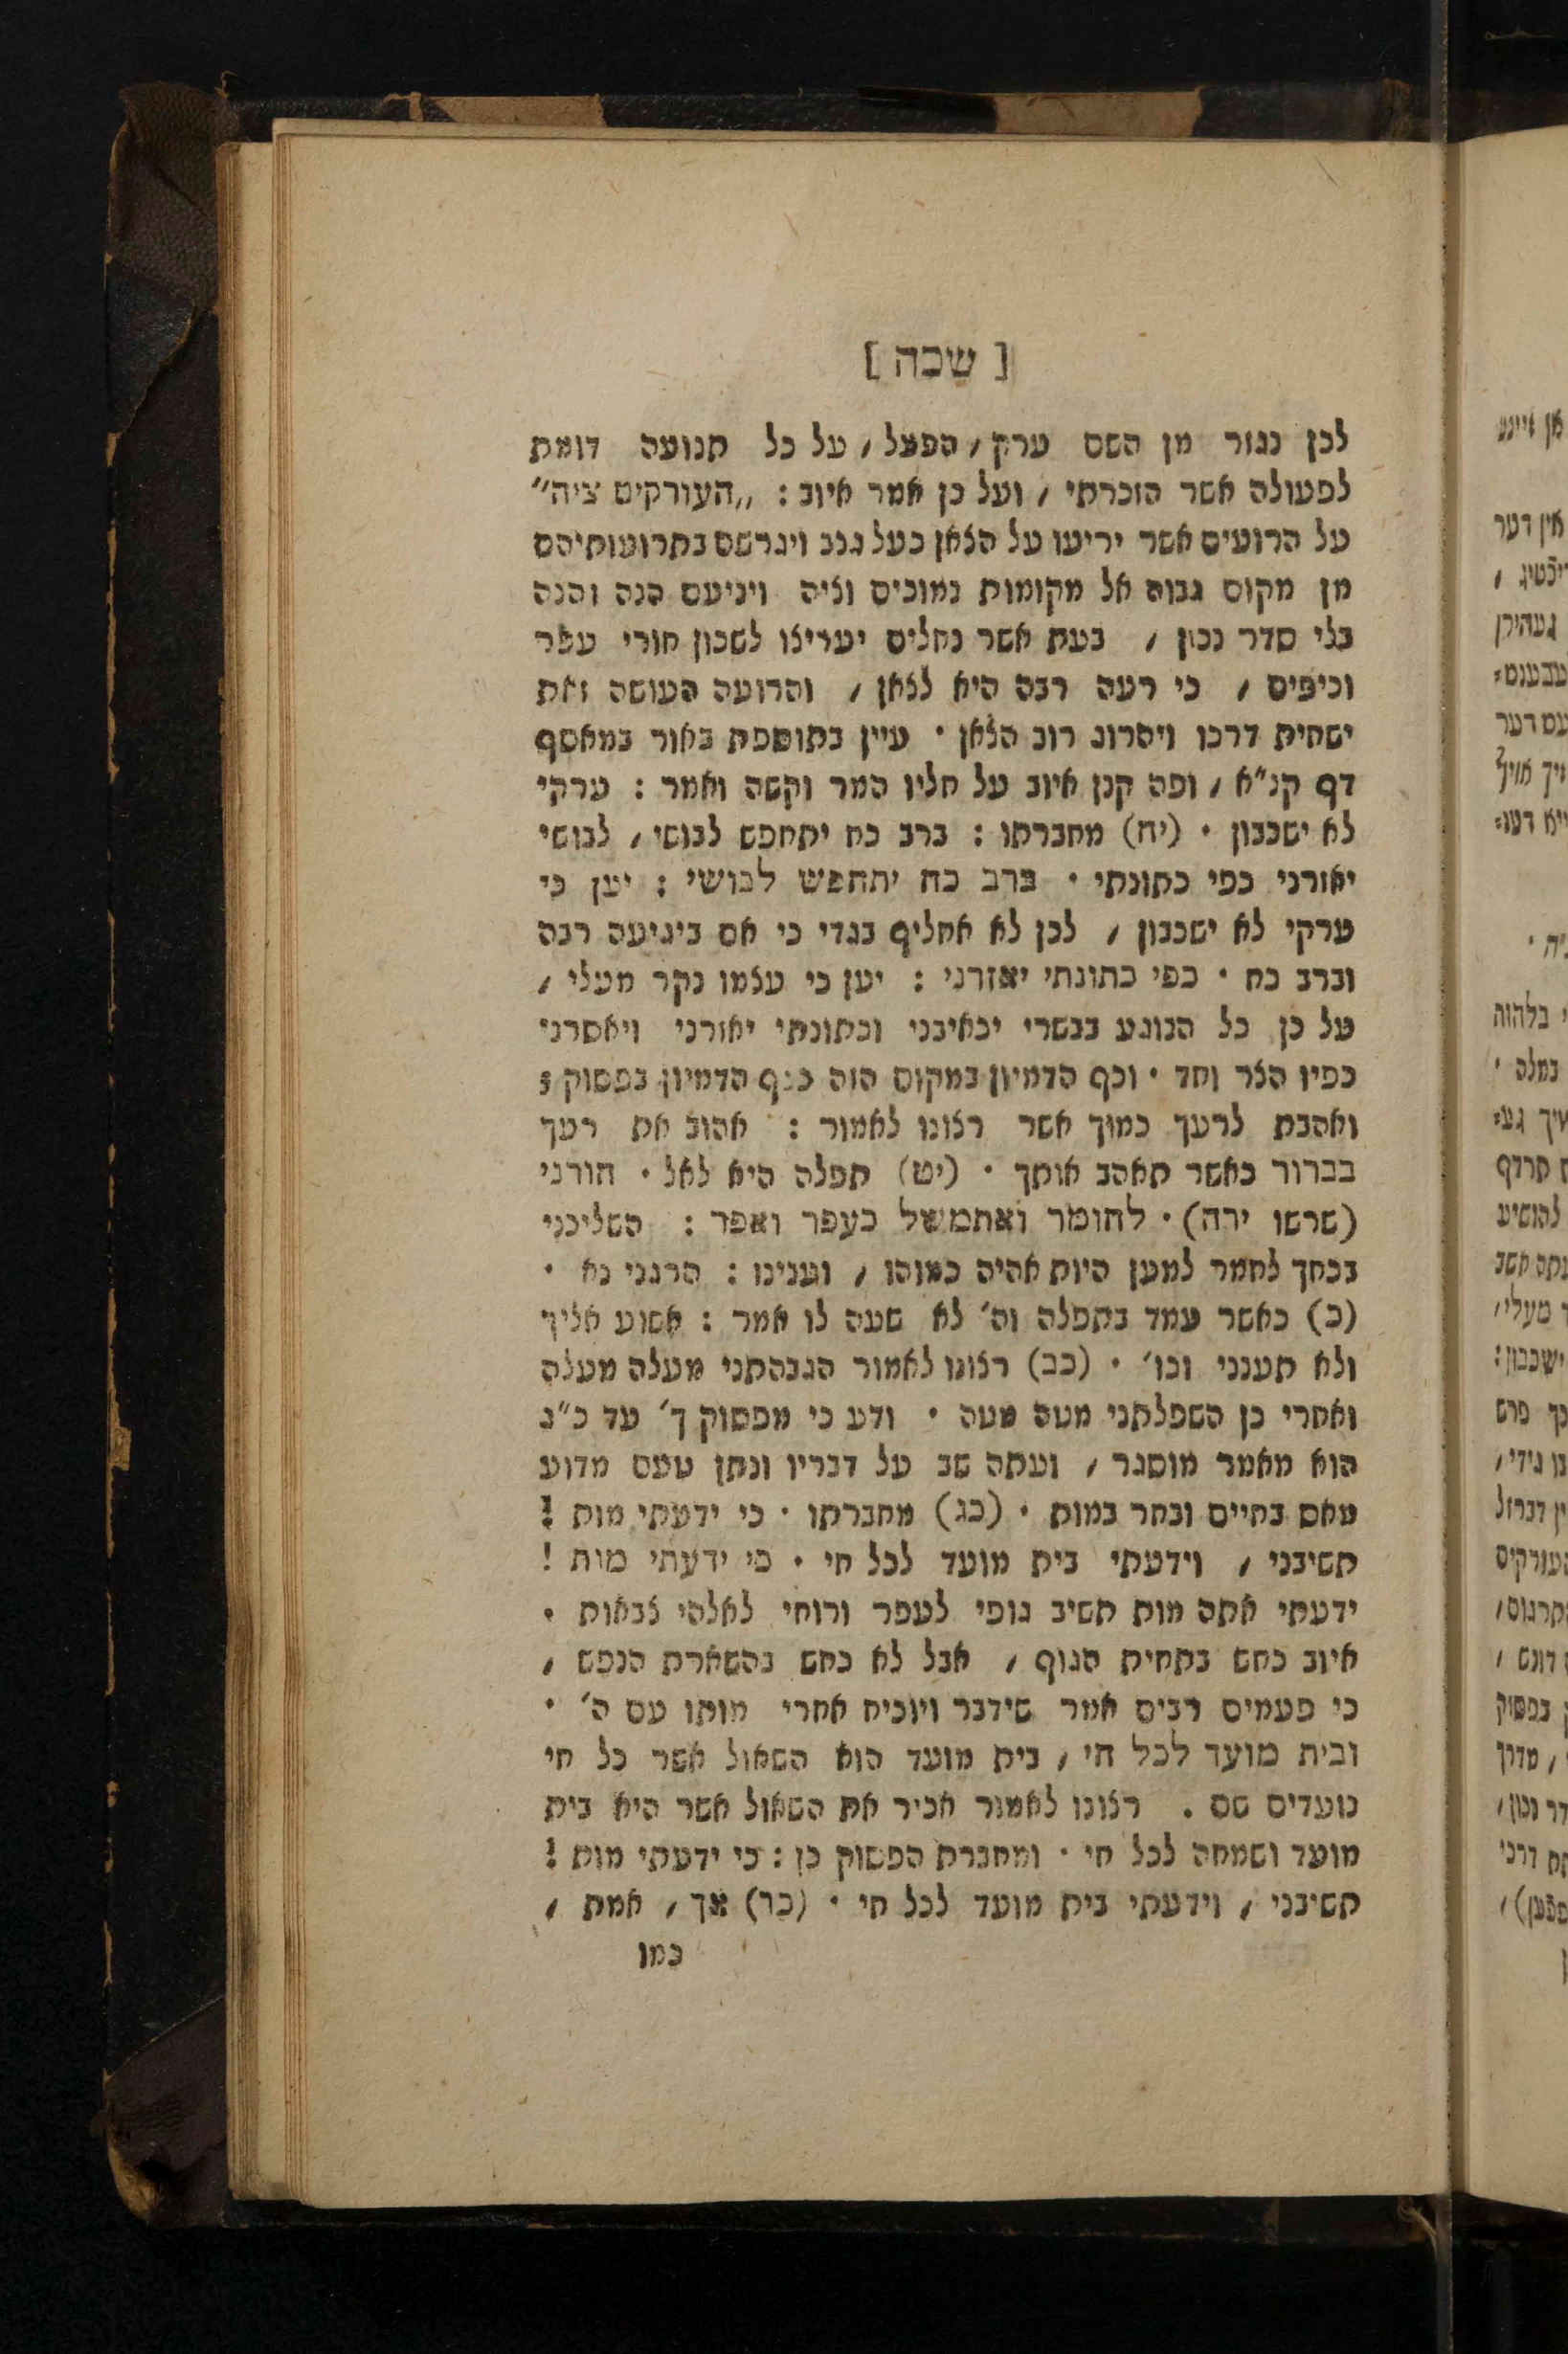 [ שכה ]
לכן נגזר מן השם ערק, הפעל, על כל תנועה דומת
לפעולה אשר הזכרתי, ועל כן אמר איוב: „העורקים ציה״
על הרועים אשר יריעו על הצאן כעל גנב ויגרשם בתרועותיהם
מן מקום גבוה אל מקומות נמוכים וציה ויניעם הנה והנה
בלי סדר נכון, בעת אשר נחלים יעריצו לשכון חורי עפר
וכיפים, כי רעה רבה היא לצאן, והרועה העושה זאת
ישחית דרכו ויהרוג רוב הצאן · עיין בתוספת באור במאסף
דף קנ״א, ופה קנן איוב על חליו המר וקשה ואמר: ערקי
לא ישכבון · (יח) מחברתו: ברב כח יתחפש לבושי, לבושי
יאזרני כפי כתונתי · ברב כח יתחפש לבושי: יען כי
ערקי לא ישכבון, לכן לא אחליף בגדי כי אם ביגיעה רבה
וברב כח · כפי כתונתי יאזרני: יען כי עצמו נקר מעלי,
על כן כל הנוגע בבשרי יכאיבני וכתונתי יאזרני ויאסרני
כפיו הצר וחד · וכף הדמיון במקום הזה ככף הדמיון בפסוק:
ואהבת לרעך כמוך אשר רצונו לאמור: אהוב את רעך
בברור כאשר תאהב אותך · (יט) תפלה היא לאל · הורני
(שרשו ירה) · לחומר ואתמשל כעפר ואפר: השליכני
בכחך לחמר למען היות אהיה כמוהו, וענינו: הרגני נא ·
(כ) כאשר עמד בתפלה וה׳ לא שעה לו אמר: אשוע אליך
ולא תענני וכו׳ · (כב) רצונו לאמור הגבהתני מעלה מעלה
ואחרי כן השפלתני מטה מטה · ודע כי מפסוק ך׳ עד כ״ג
הוא מאמר מוסגר, ועתה שב על דבריו ונתן טעם מדוע
מאס בחיים ובחר במות · (כג) מחברתו · כי ידעתי מות!
תשיבני, וידעתי בית מועד לכל חי · כי ידעתי מות!
ידעתי אתה מות תשיב גופי לעפר ורוחי לאלהי צבאות ·
איוב כחש בתחית הגוף, אבל לא כחש בהשארת הנפש,
כי פעמים רבים אמר שידבר ויוכיח אחרי מותו עם ה׳ ·
ובית מועד לכל חי, בית מועד הוא השאול אשר כל חי
נועדים שם . רצונו לאמור אכיר את השאול אשר היא בית
מועד ושמחה לכל חי · ומחברת הפסוק כן: כי ידעתי מות!
תשיבני, וידעתי בית מועד לכל חי · (כד) אך, אמת,
כמו